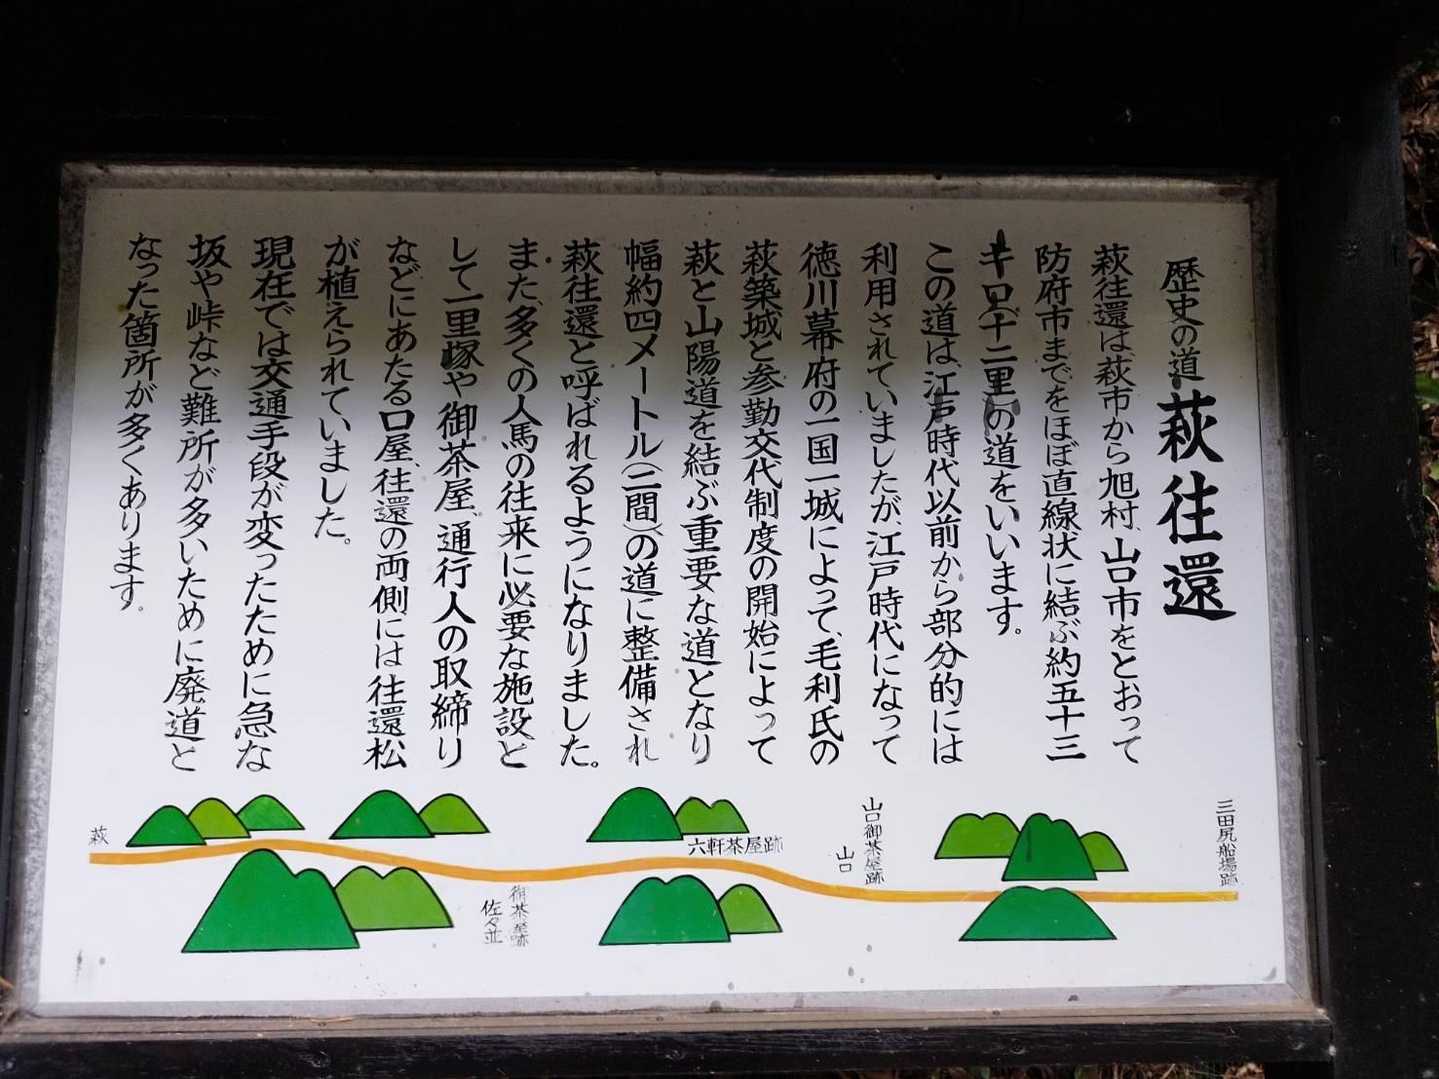 歴史の道 萩往還
萩往還は萩市から旭村、山口市をとおって
防府市までをほぼ直線状に結ぶ約五十三
キロ(十二里)の道をいいます。
この道は、江戸時代以前から部分的には
利用されていましたが、江戸時代になって
徳川幕府の一国一城によって、毛利氏の
萩築城と参勤交代制度の開始によって
萩と山陽道を結ぶ重要な道となり
幅約四メートル(二間)の道に整備され
萩往還と呼ばれるようになりました。
また、多くの人馬の往来に必要な施設と
して一里塚や御茶屋、通行人の取締り
などにあたる口屋、往還の両側には往還松
が植えられていました。
現在では交通手段が変ったために急な
坂や峠など難所が多いために廃道と
なった箇所が多くあります。
三田尻船場跡
山口御茶屋跡
山口
六軒茶屋跡
御茶屋跡
佐々並
萩